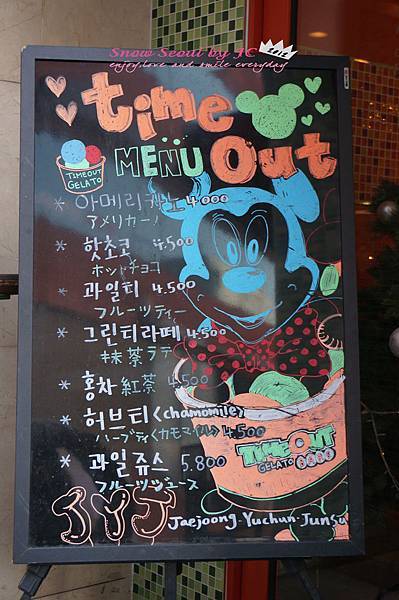 Snow Seoul by JC
enjoy.love and smile everyday
time
TIMEOUT
GELATO
MENU Out
* 아메리카노 4.000
アメリカーノ
* 핫초코 4.500
ホットチョコ
* 과일티 4.500
フルーツティー
* 그린티라떼 4.500
抹茶ラテ
* 홍차 紅茶 4.500
* 허브티 <chamomile>
ハーブティ<カモマイル> 4.500
TIMEOUT
GELATO
* 과일쥬스 5.800
フルーツジュース
JYJ
Jaejoong-Yuchun-Junsu